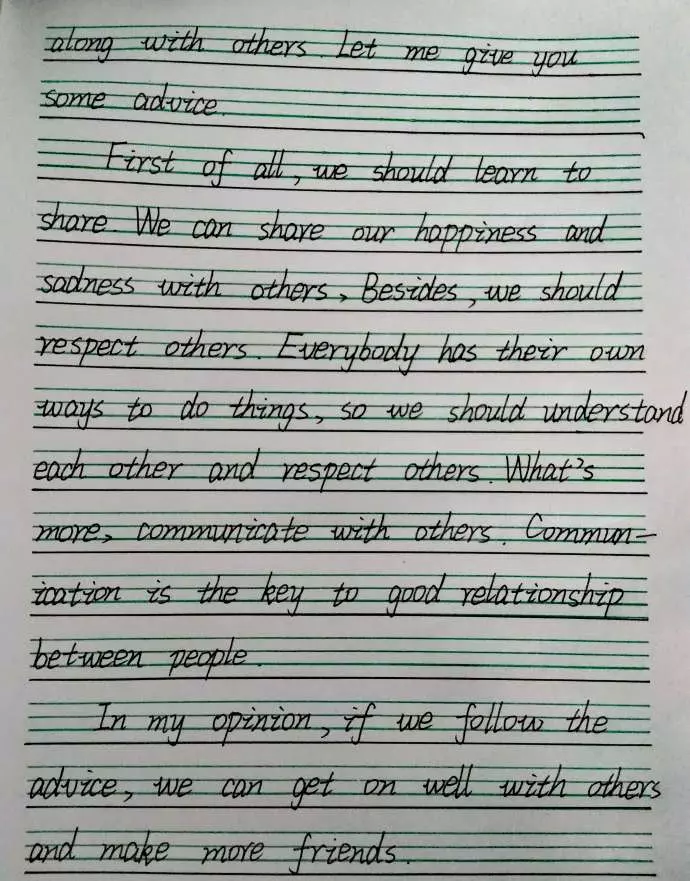 along with others. Let me give you
some advice.
First of all, we should learn to
share. We can share our happiness and
sadness with others, Besides, we should
respect others. Everybody has their own
ways to do things, so we should understand
each other and respect others. What's
more, communicate with others. Commun-
ication is the key to good relationship
between people.
In my opinion, if we follow the
advice, we can get on well with others
and make more friends.